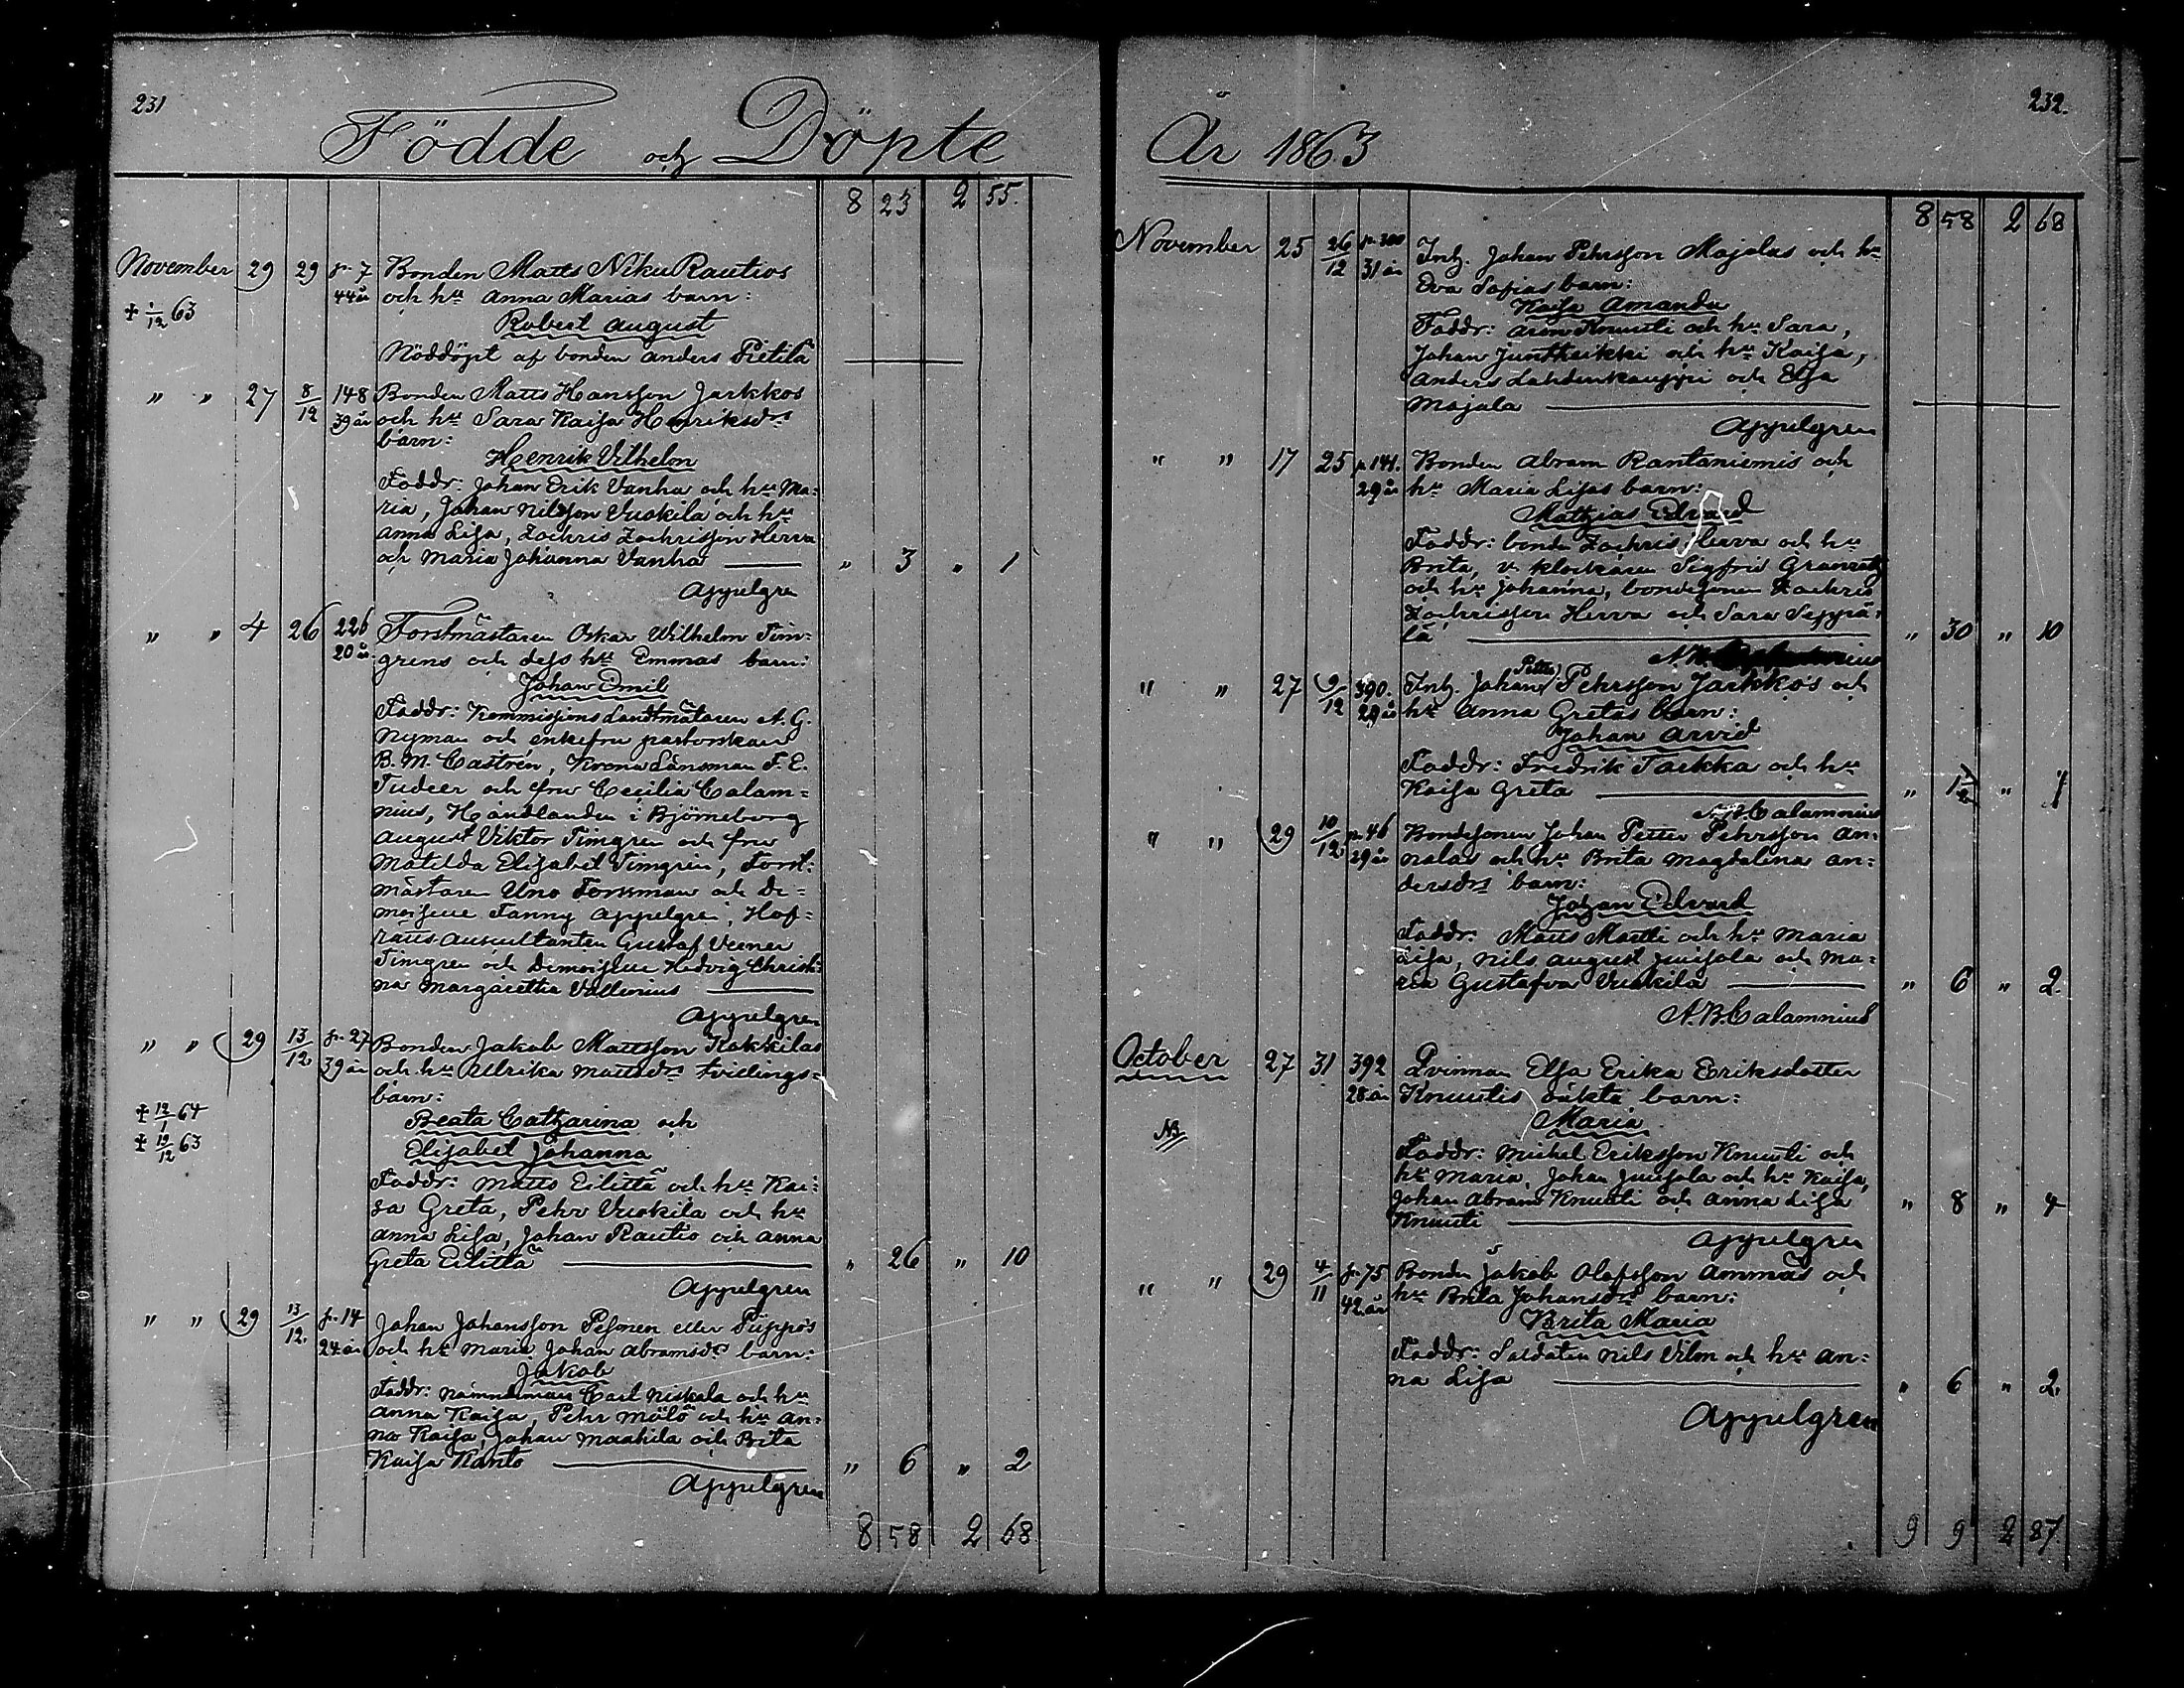 231
Födde och Döpte
8 23 2 55.
November 29 29 p. 7 Bonden Matts Niku Rautios
44 år och hu Anna Marias barn:
+ 1/12 63
Robert August
Nöddöpt af bonden Anders Pietilä
" " 27 8/12 148 Bonden Matts Hansson Jarkkos
39 år och hu Sara Kaisa Henriksdrs
barn:
Henrik Vilhelm
Faddr: Johan Erik Vanha och hu Ma=
ria, Johan Nilsson Vuokila och hu
Anna Lisa, Zachris Zachrisson Herva
och Maria Johanna Vanha " 3 " 1
Appelgren
" " 4 26 226 Forstmästaren Oskar Wilhelm Tim=
20 år grens och dess hu Emmas barn:
Johan Emil
Faddr: Kommissions Landtmätaren A. G.
Nyman och enkefru pastorskan
B. M. Castrén, Krono Länsman F. E.
Tudeer och fru Cecilia Calam=
nius, Handlanden i Björneborg
August Viktor Timgren och fru
Matilda Elisabet Timgren, Forst=
mästaren Uno Forssman och De=
moiselle Fanny Appelgren, Hof=
rätts Auscultanten Gustaf Verner
Timgren och Demoiselle Hedvig Christi=
na Margaretha Vallenius
Appelgren
" " 29 13/12 p. 27 Bonden Jakob Mattsson Kokkilas
39 år och hu Ulrika Mattsdrs tvillings=
barn:
+ 12/1 64 Beata Catharina och
+ 19/12 63 Elisabet Johanna
Faddr: Matts Eilittä och hu Kai=
sa Greta, Pehr Vuokila och hu
Anna Lisa, Johan Rautio och Anna
Greta Eilittä " 26 " 10
Appelgren
" " 29 13/12. p. 14 Johan Johansson Pesonen eller Piippo's
24 år och hu Maria Johan Abramsdrs barn:
Jakob
Faddr: Nämndeman Carl Niskala och hu
Anna Kaisa, Pehr Mölö och hu An=
na Kaisa, Johan Maakila och Brita
Kaisa Kanto " 6 " 2
Appelgren
8 58 2 68
232.
År 1863
8 58 2 68
November 25 26/12 p. 300 Inh. Johan Pehrsson Majalas och hu
31 år Eva Sofias barn:
Kaisa Amanda
Faddr: Aron Knuuti och hu Sara,
Johan Juntheikki och hu Kaisa,
Anders Lahdenkauppi och Elsa
Majala
Appelgren
" " 17 25 p. 141. Bonden Abram Rantaniemis och
29 år hu Maria Lisas barn:
Mathias Edvard
Faddr: bonden Zachris Herva och hu
Brita, v. klockaren Sigfrid Granroth
och hu Johanna, bondesonen Zachris
Zachrisson Herva och Sara Seppä=
lä " 30 " 10
" " 27 9/12 390. Inh. Johan Petter Pehrsson Jarkko's och
29 år hu Anna Gretas barn:
Johan Arvid
Faddr: Fredrik Taikka och hu
Kaisa Greta " 1 1/2 "
A. B. Calamnius
" " 29 10/12 p. 46 Bondesonen Johan Petter Pehrsson An=
29 år nalas och hu Brita Magdalena An=
dersdrs barn:
Johan Edvard
Faddr: Matts Martti och hu Maria
Lisa, Nils August Junjola och Ma=
ria Gustafva Vuokila " 6 " 2.
A. B. Calamnius
October 27 31 392 Qvinnan Elsa Erika Eriksdotter
28 år Knuutis oäkta barn:
NB Maria
Faddr: Michel Eriksson Knuuti och
hu Maria, Johan Junjola och hu Kaisa,
Johan Abram Knuuti och Anna Lisa
Knuuti " 8 " 4
Appelgren
" " 29 4/11 p. 75 Bonden Jakob Olofsson Ammäs och
42 år hu Brita Johansdrs barn:
Brita Maria
Faddr: Soldaten Nils Vilm och hu An=
na Lisa " 6 " 2.
Appelgren
9 9 2 87.